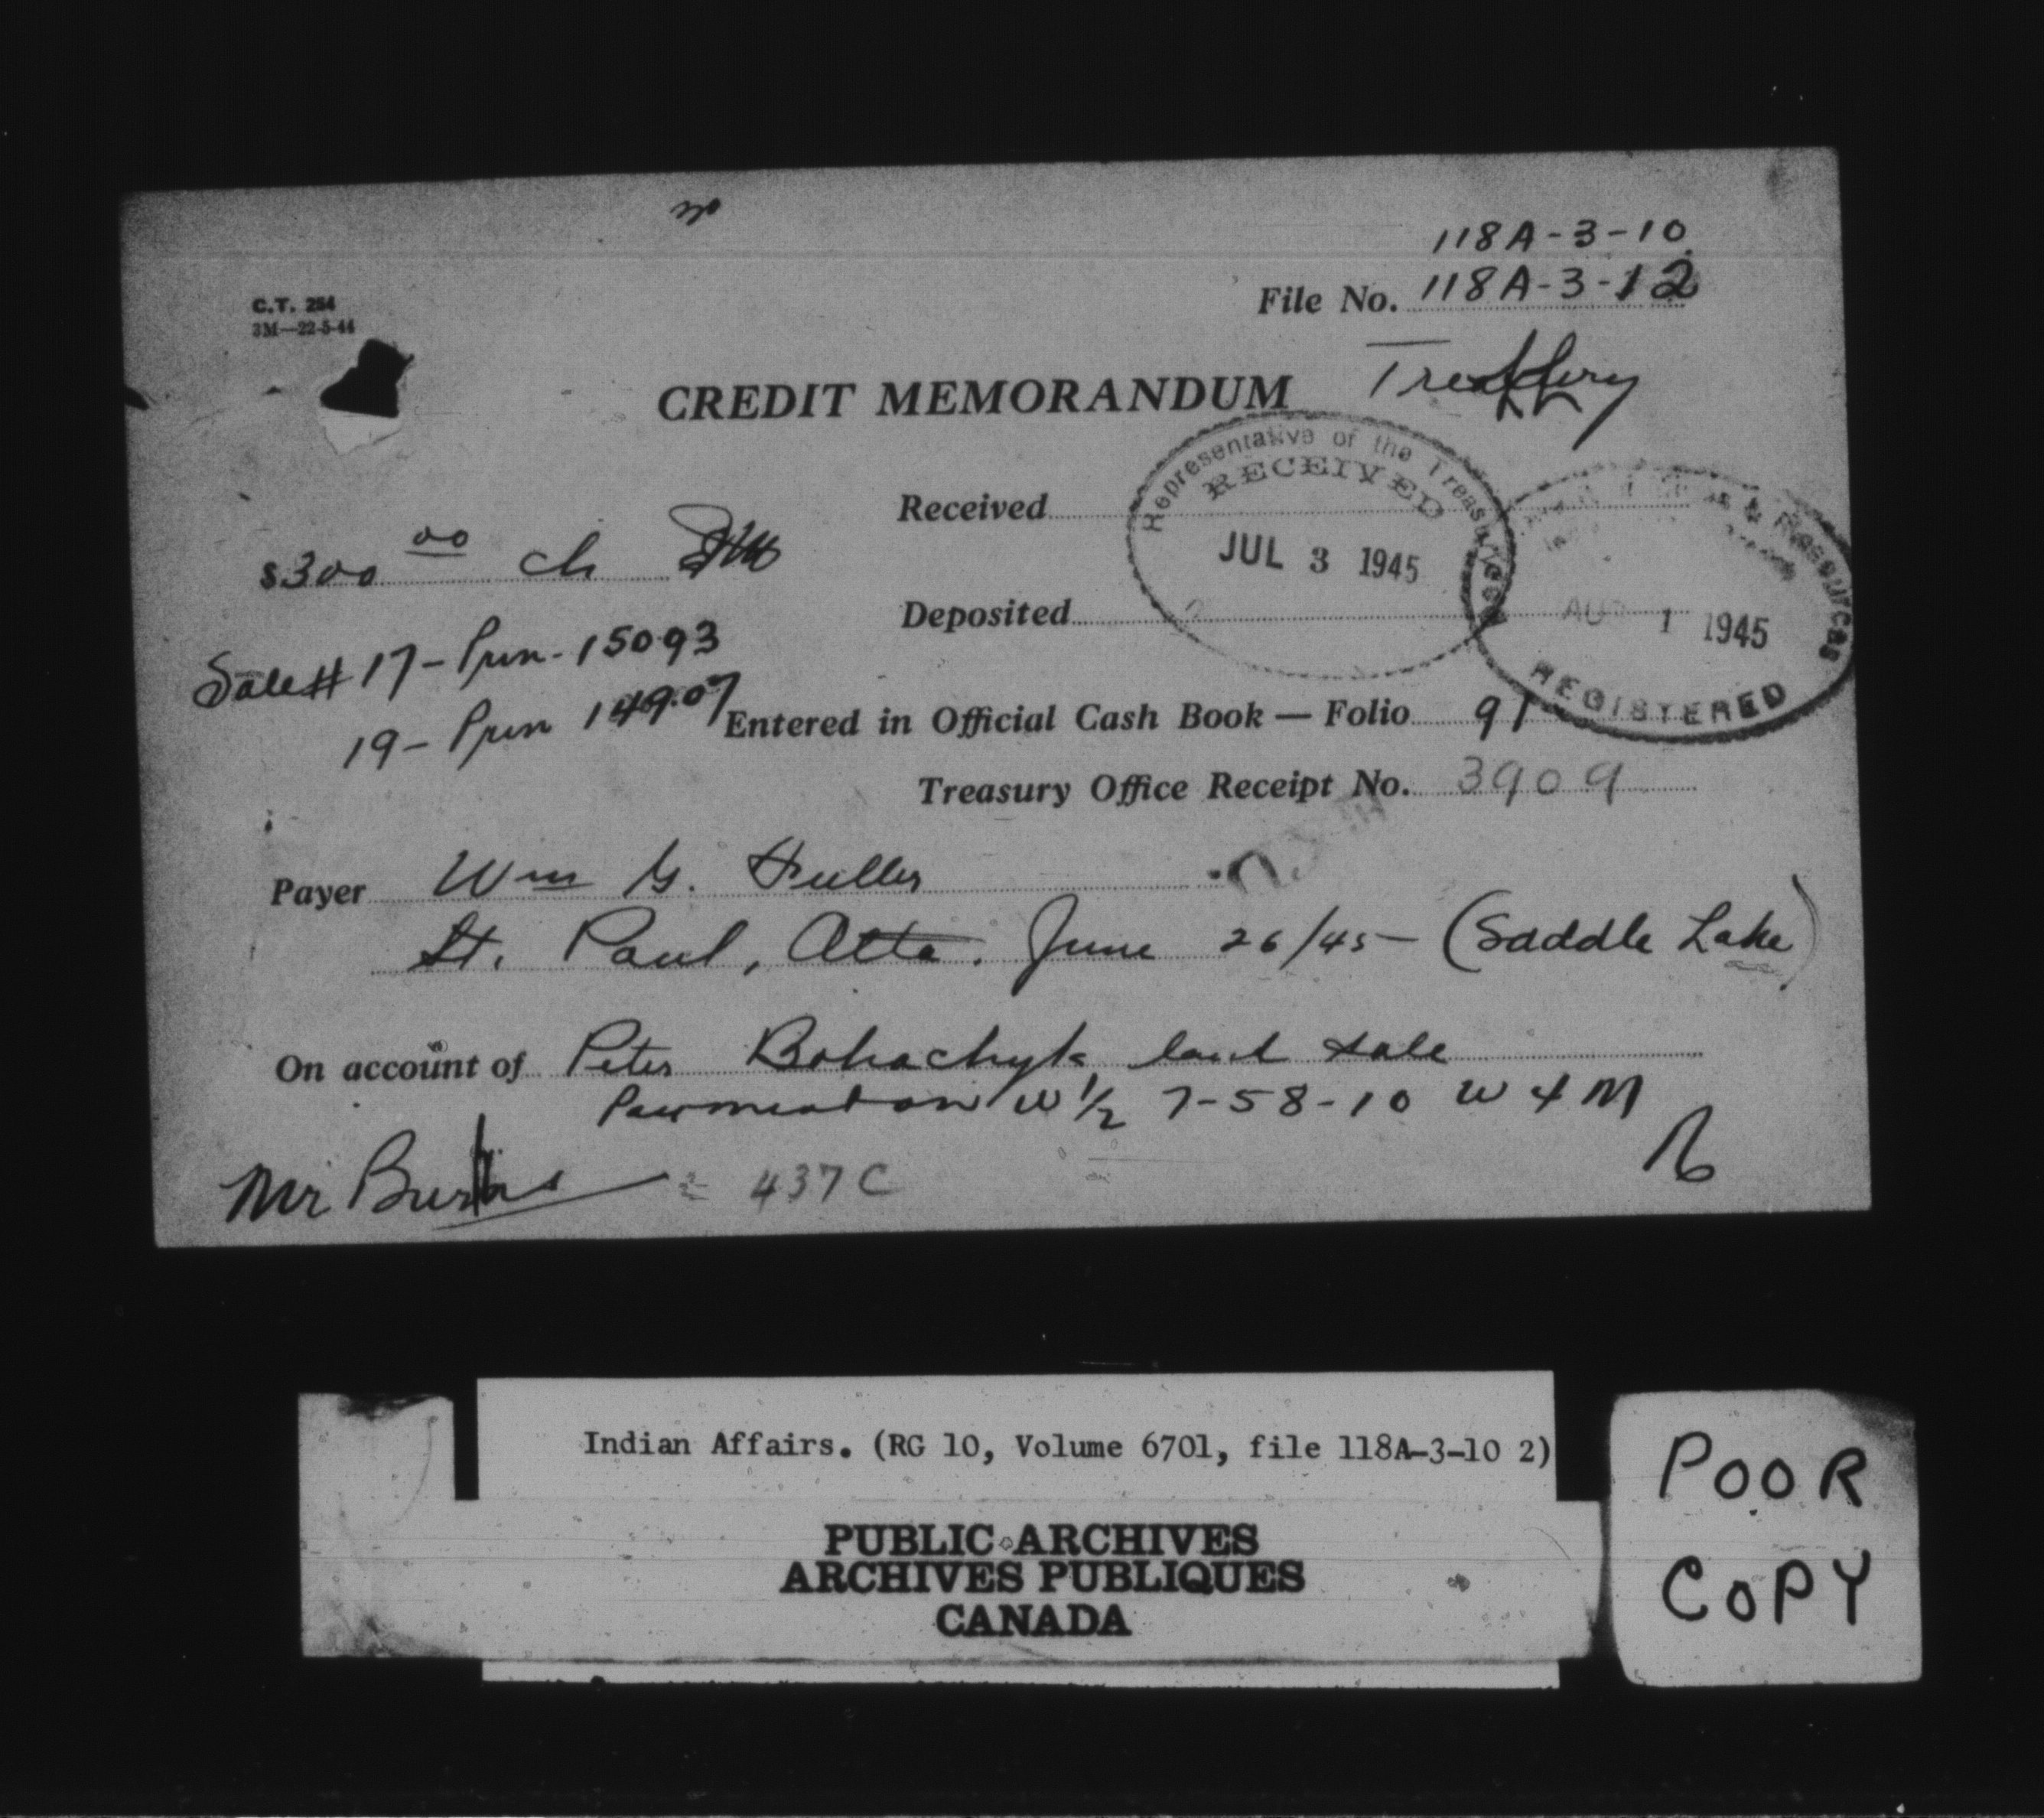 118A-3-10
File No. 118A-3-12
C.T. 254
3M—22-5-44
CREDIT MEMORANDUM
Representative of the Treasury
RECEIVED
JUL 3 1945
Received
$300 00 ch
Deposited
& Resources
AUG 1 1945
REGISTERED
Sale# 17 - Prin - 150.93
19 - Prin 149.07
Entered in Official Cash Book — Folio 91
Treasury Office Receipt No. 3909
Payer Wm G. Fuller
St. Paul, Alta. June 26/45 - (Saddle Lake)
On account of Peter Bohachyk land sale
W 1/2 7-58-10 W 4 M
Mr Burns 437C
Indian Affairs. (RG 10, Volume 6701, file 118A-3-10 2)
PUBLIC ARCHIVES
ARCHIVES PUBLIQUES
CANADA
POOR
COPY